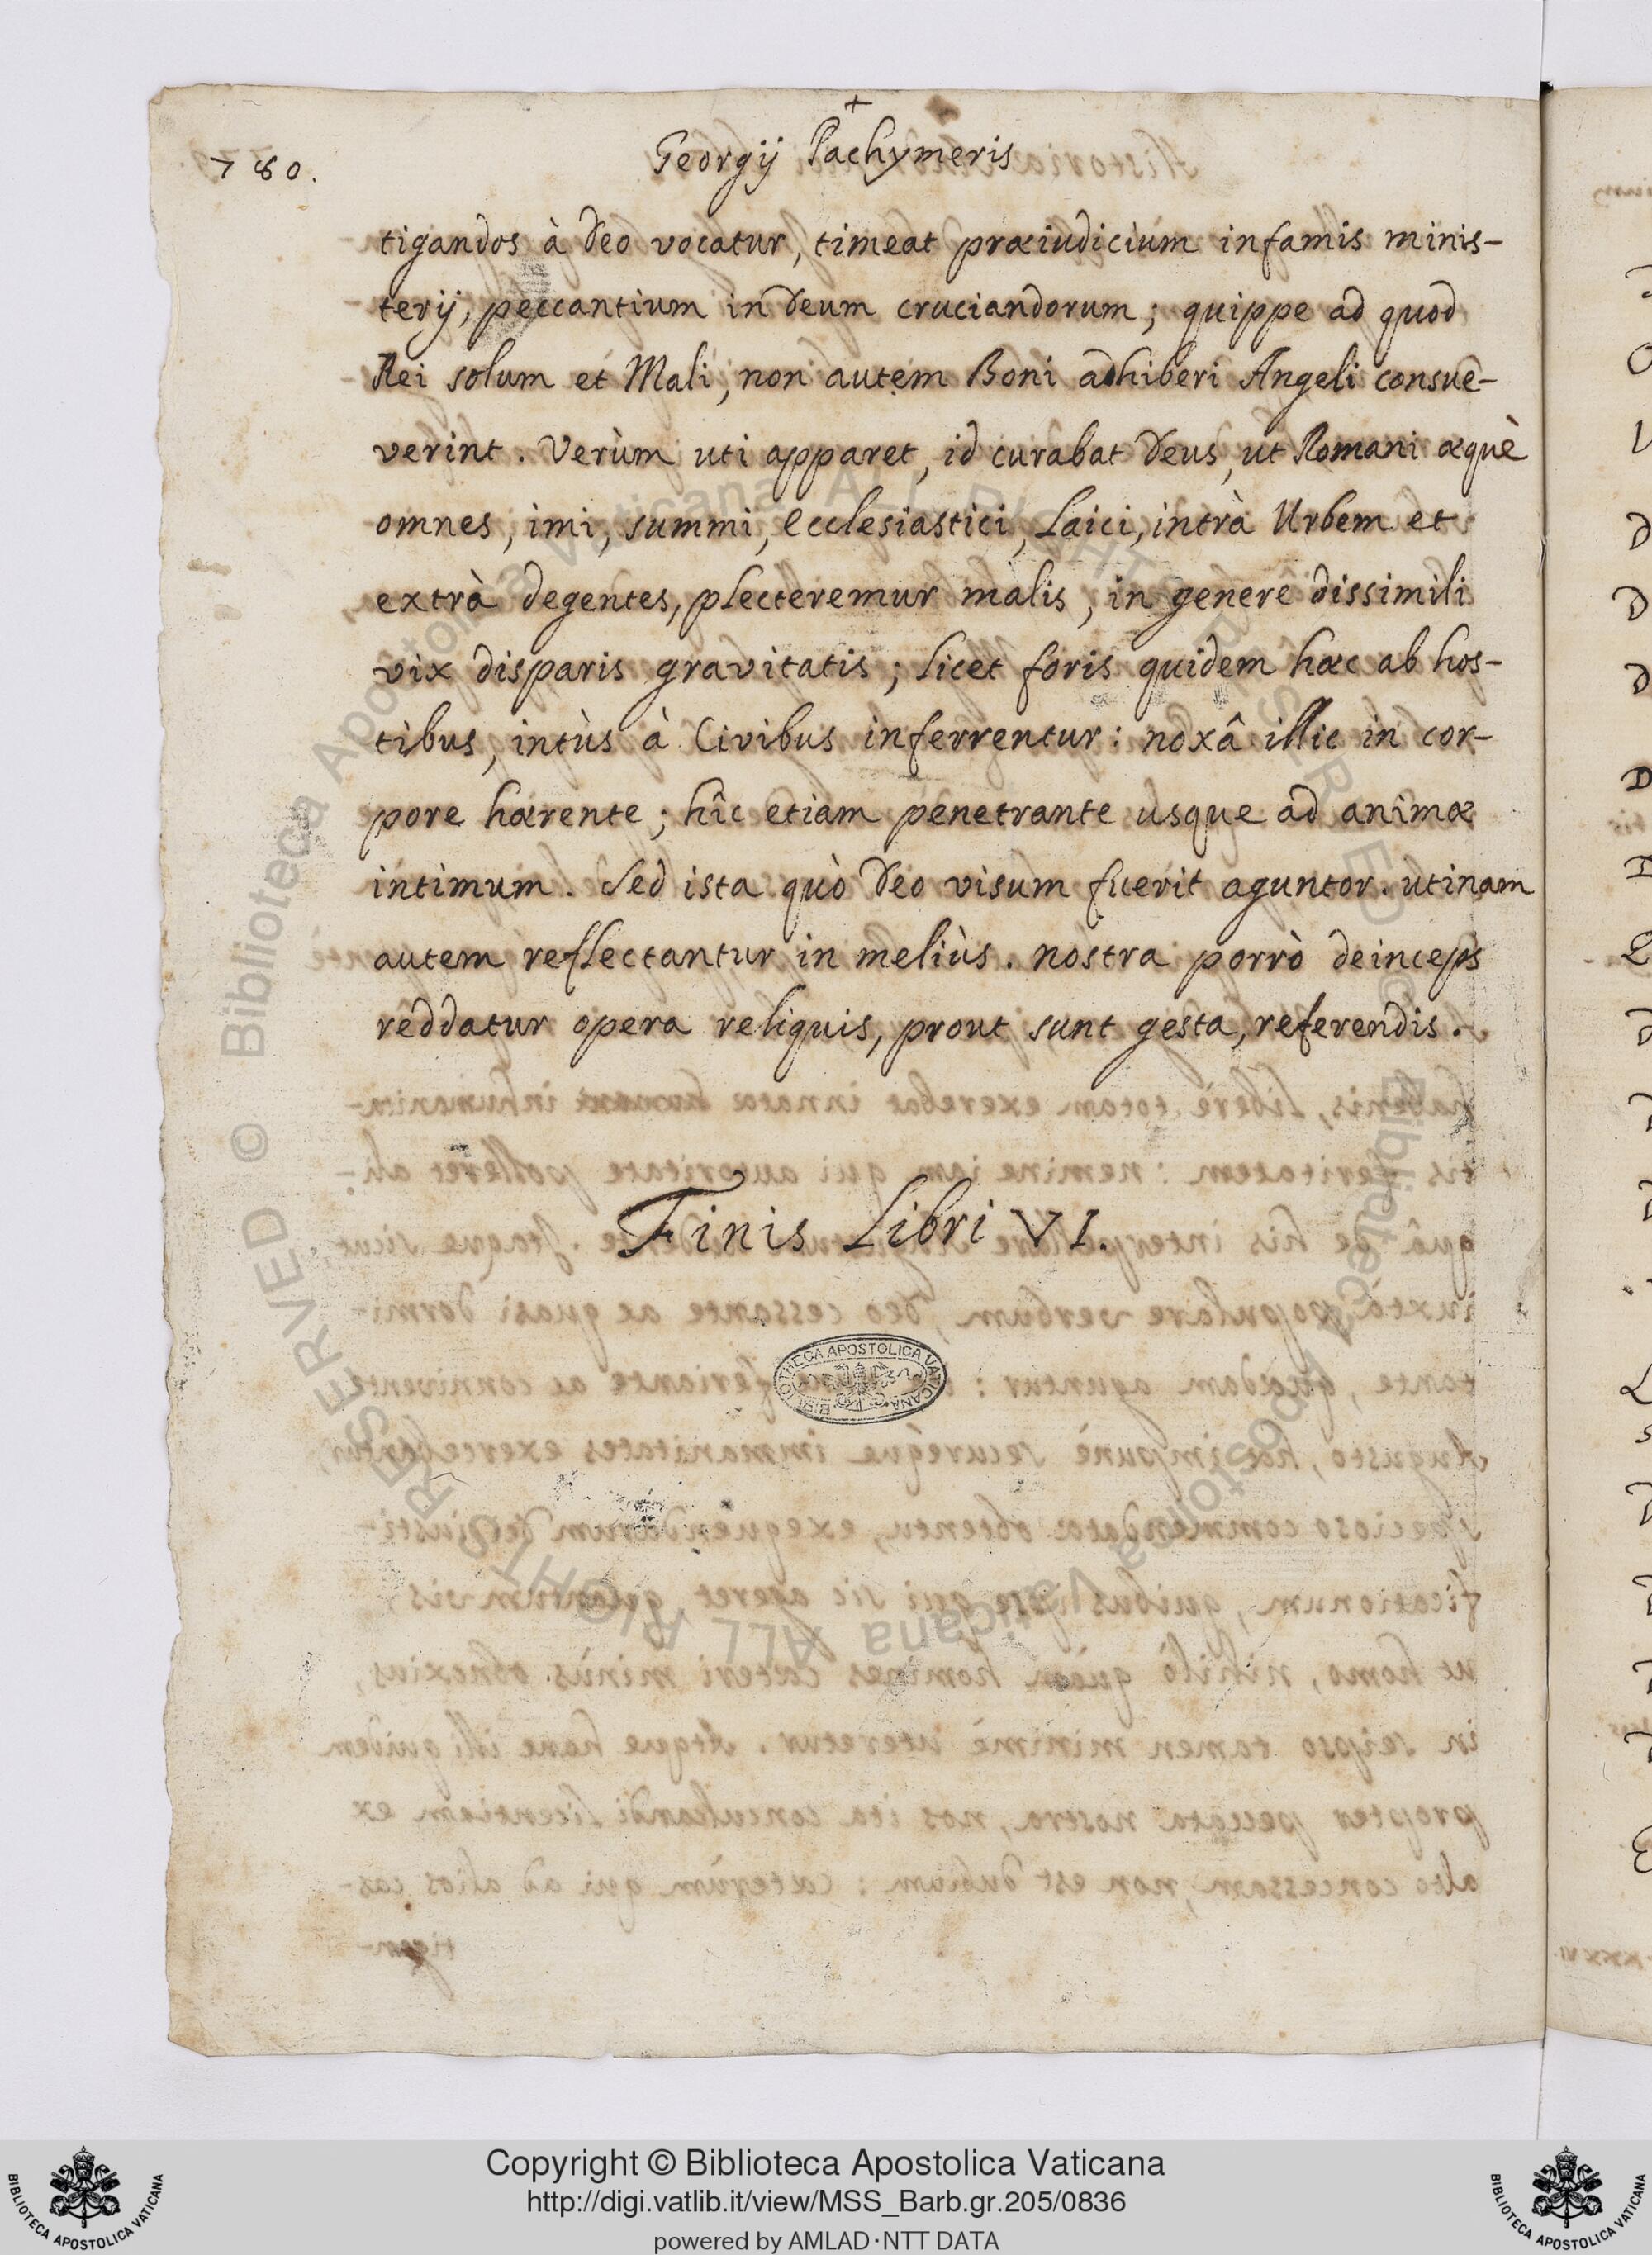 +
780. Georgij Pachymeris
tigandos à Deo vocatur, timeat præiudicium infamis minis-
terij, peccantium in Deum cruciandorum; quippe ad quod
Rei solum et Mali, non autem Boni adhiberi Angeli consue-
verint. Verùm uti apparet, id curabat Deus, ut Romani æquè
omnes, imi, summi, Ecclesiastici, Laici, intrà Urbem et
extrà degentes, plecteremur malis, in genere dissimili
vix disparis gravitatis; licet foris quidem hæc ab hos-
tibus, intùs à Civibus inferrentur: noxâ illic in cor-
pore hærente; hîc etiam penetrante usque ad animæ
intimum. Sed ista quò Deo visum fuerit aguntor. utinam
autem reflectantur in meliùs. nostra porrò deinceps
reddatur opera reliquis, prout sunt gesta, referendis.
Finis Libri VI.
BIBLIOTHECA APOSTOLICA VATICANA
Copyright © Biblioteca Apostolica Vaticana
http://digi.vatlib.it/view/MSS_Barb.gr.205/0836
powered by AMLAD·NTT DATA
BIBLIOTECA APOSTOLICA VATICANA
BIBLIOTECA APOSTOLICA VATICANA